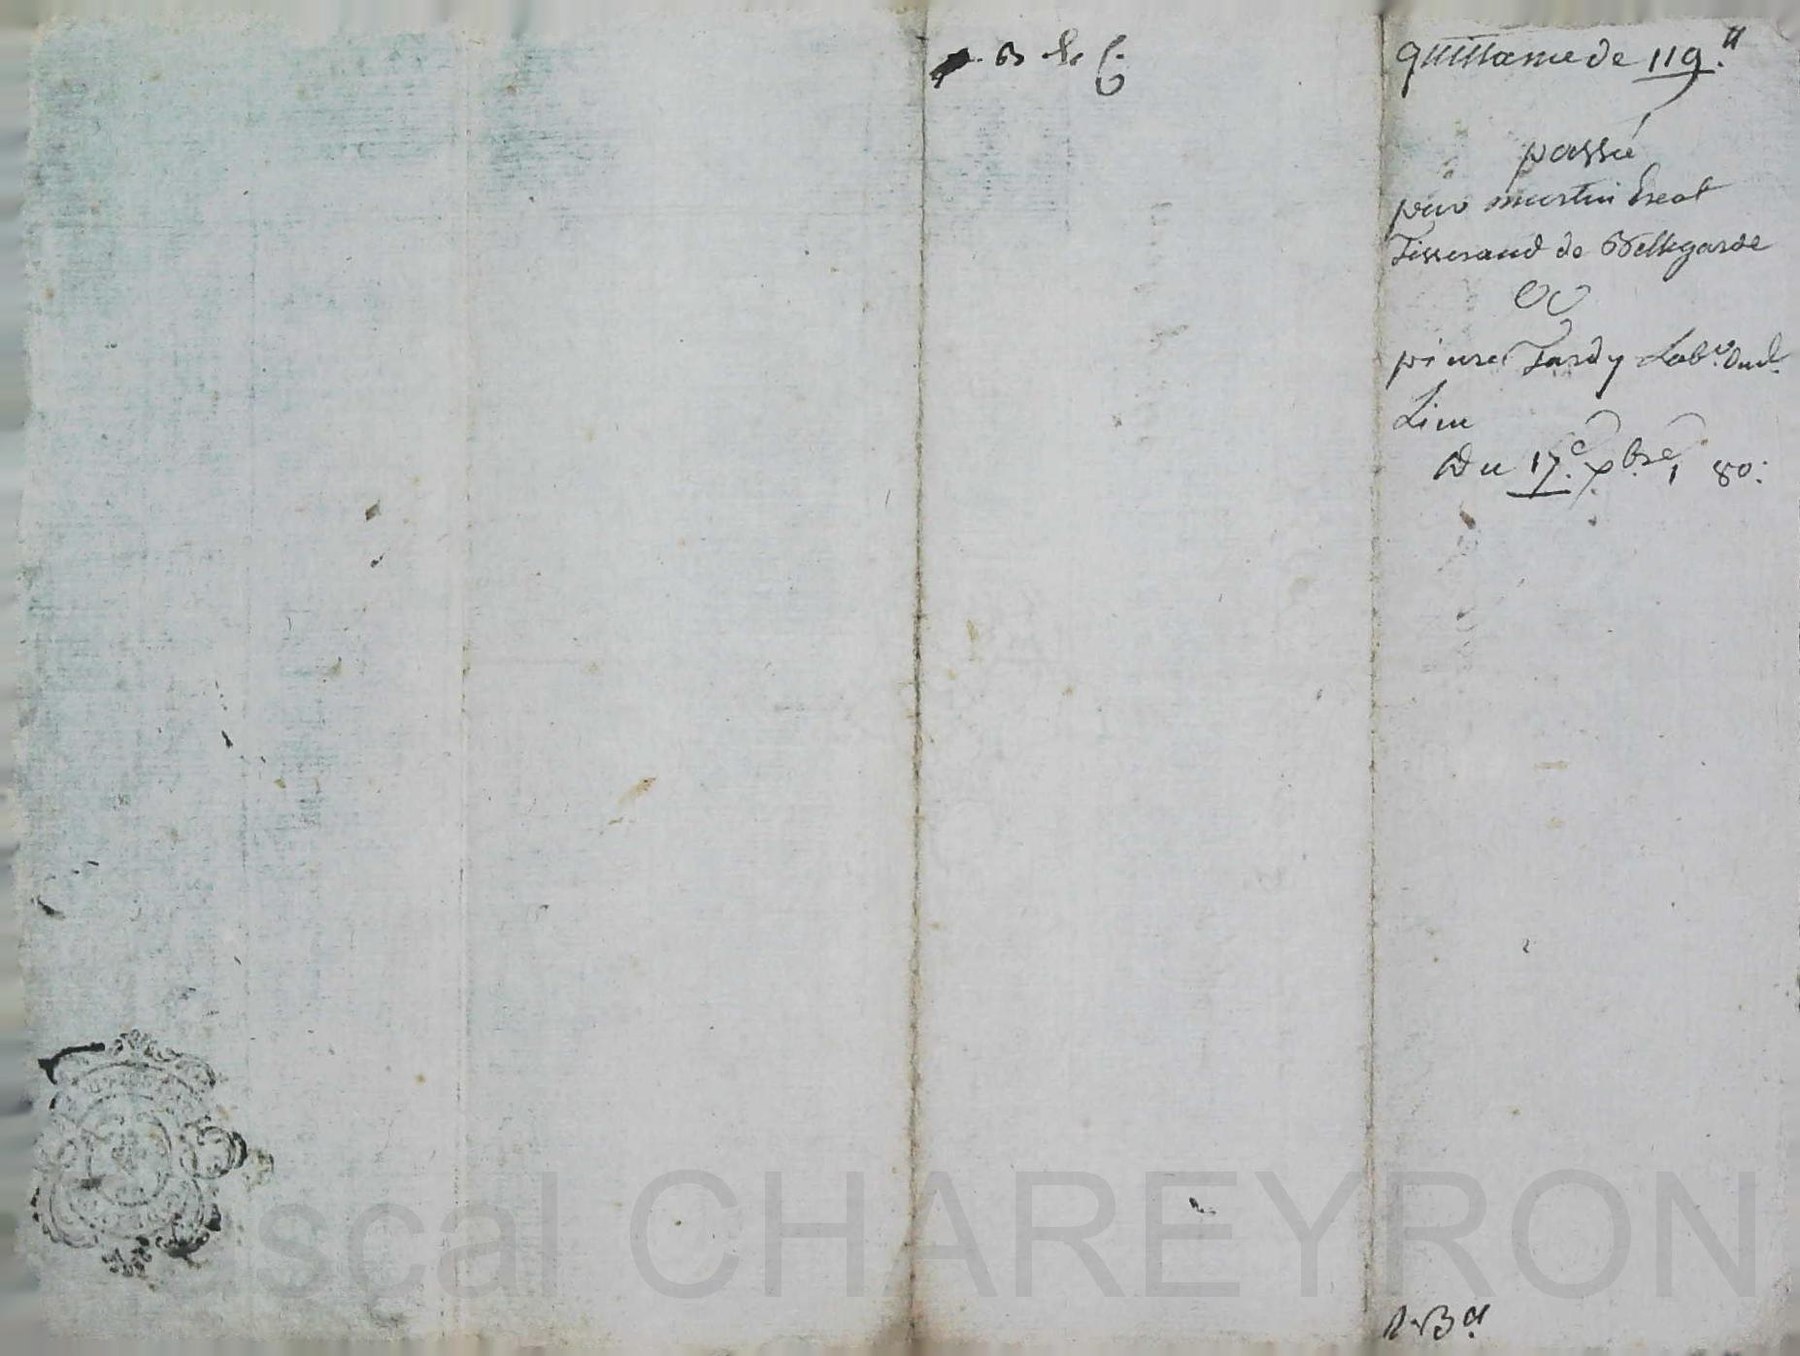 quittance de 119.tt
passé
par martin
Tisserand de Bellegarde
a
pierre Tardy Lab.r dud.
Lieu
Du 17.e Xbre, 80.
Pascal CHAREYRON